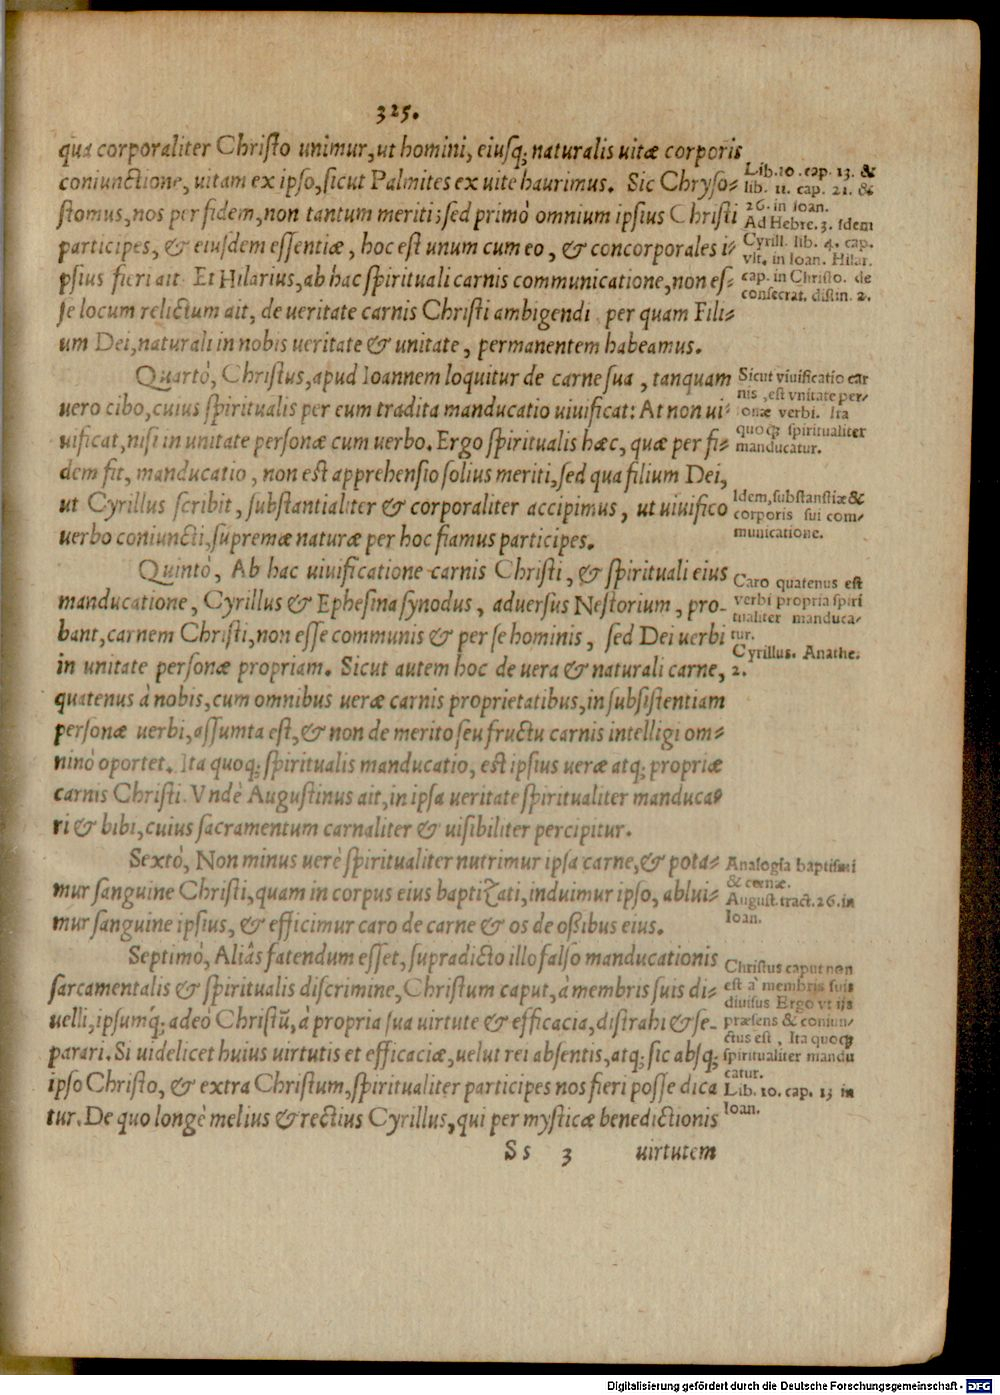 325.
qua corporaliter Christo unimur, ut homini, eiusq; naturalis uitæ corporis
coniunctione, uitam ex ipso, sicut Palmites ex uite haurimus. Sic Chryso-
stomus, nos per fidem, non tantum meriti; sed primò omnium ipsius Christi
participes, & eiusdem essentiæ, hoc est unum cum eo, & concorporales i-
psius fieri ait. Et Hilarius, ab hac spirituali carnis communicatione, non es-
se locum relictum ait, de ueritate carnis Christi ambigendi per quam Fili-
um Dei, naturali in nobis ueritate & unitate, permanentem habeamus.
Lib. 10. cap. 13. &
lib. 11. cap. 21. &
26. in Ioan.
Ad Hebre. 3. Idem
Cyrill. lib. 4. cap.
vlt. in Ioan. Hilar.
cap. in Christo. de
consecrat. distin. 2.
Quartò, Christus, apud Ioannem loquitur de carne sua, tanquam
uero cibo, cuius spiritualis per eum tradita manducatio uiuificat: At non ui-
uificat, nisi in unitate personæ cum uerbo. Ergo spiritualis hæc, quæ per fi-
dem fit, manducatio, non est apprehensio solius meriti, sed qua filium Dei,
ut Cyrillus scribit, substantialiter & corporaliter accipimus, ut uiuifico
uerbo coniuncti, supremæ naturæ per hoc fiamus participes.
Sicut viuificatio car
nis, est vnitate per-
onæ verbi. Ita
quoq; spiritualiter
manducatur.
Idem, substanstiæ &
corporis sui com-
municatione.
Quintò, Ab hac uiuificatione carnis Christi, & spirituali eius
manducatione, Cyrillus & Ephesina synodus, aduersus Nestorium, pro-
bant, carnem Christi, non esse communis & per se hominis, sed Dei uerbi
in unitate personæ propriam. Sicut autem hoc de uera & naturali carne,
quatenus à nobis, cum omnibus ueræ carnis proprietatibus, in subsistentiam
personæ uerbi, assumta est, & non de merito seu fructu carnis intelligi om-
ninò oportet. Ita quoq; spiritualis manducatio, est ipsius ueræ atq; propriæ
carnis Christi. Vndè Augustinus ait, in ipsa ueritate spiritualiter manduca-
ri & bibi, cuius sacramentum carnaliter & uisibiliter percipitur.
Caro quatenus est
verbi propria spiri
tualiter manduca-
tur.
Cyrillus. Anathe.
2.
Sextò, Non minus uerè spiritualiter nutrimur ipsa carne, & pota-
mur sanguine Christi, quam in corpus eius baptizati, induimur ipso, ablui-
mur sanguine ipsius, & efficimur caro de carne & os de oßibus eius.
Analogia baptismi
& cœnæ.
August. tract. 26. in
Ioan.
Septimò, Aliâs fatendum esset, supradicto illo falso manducationis
sarcamentalis & spiritualis discrimine, Christum caput, à membris suis di-
uelli, ipsumq́; adeò Christū, à propria sua uirtute & efficacia, distrahi & se-
parari. Si uidelicet huius uirtutis et efficaciæ, uelut rei absentis, atq; sic absq;
ipso Christo, & extra Christum, spiritualiter participes nos fieri posse dica
tur. De quo longè melius & rectius Cyrillus, qui per mysticæ benedictionis
Christus caput non
est à membris suis
diuisus Ergo vt ijs
præsens & coniun-
ctus est, Ita quoq;
spiritualiter mandu
catur.
Lib. 10. cap. 13 in
Ioan.
Ss 3 uirtutem
Digitalisierung gefördert durch die Deutsche Forschungsgemeinschaft - DFG